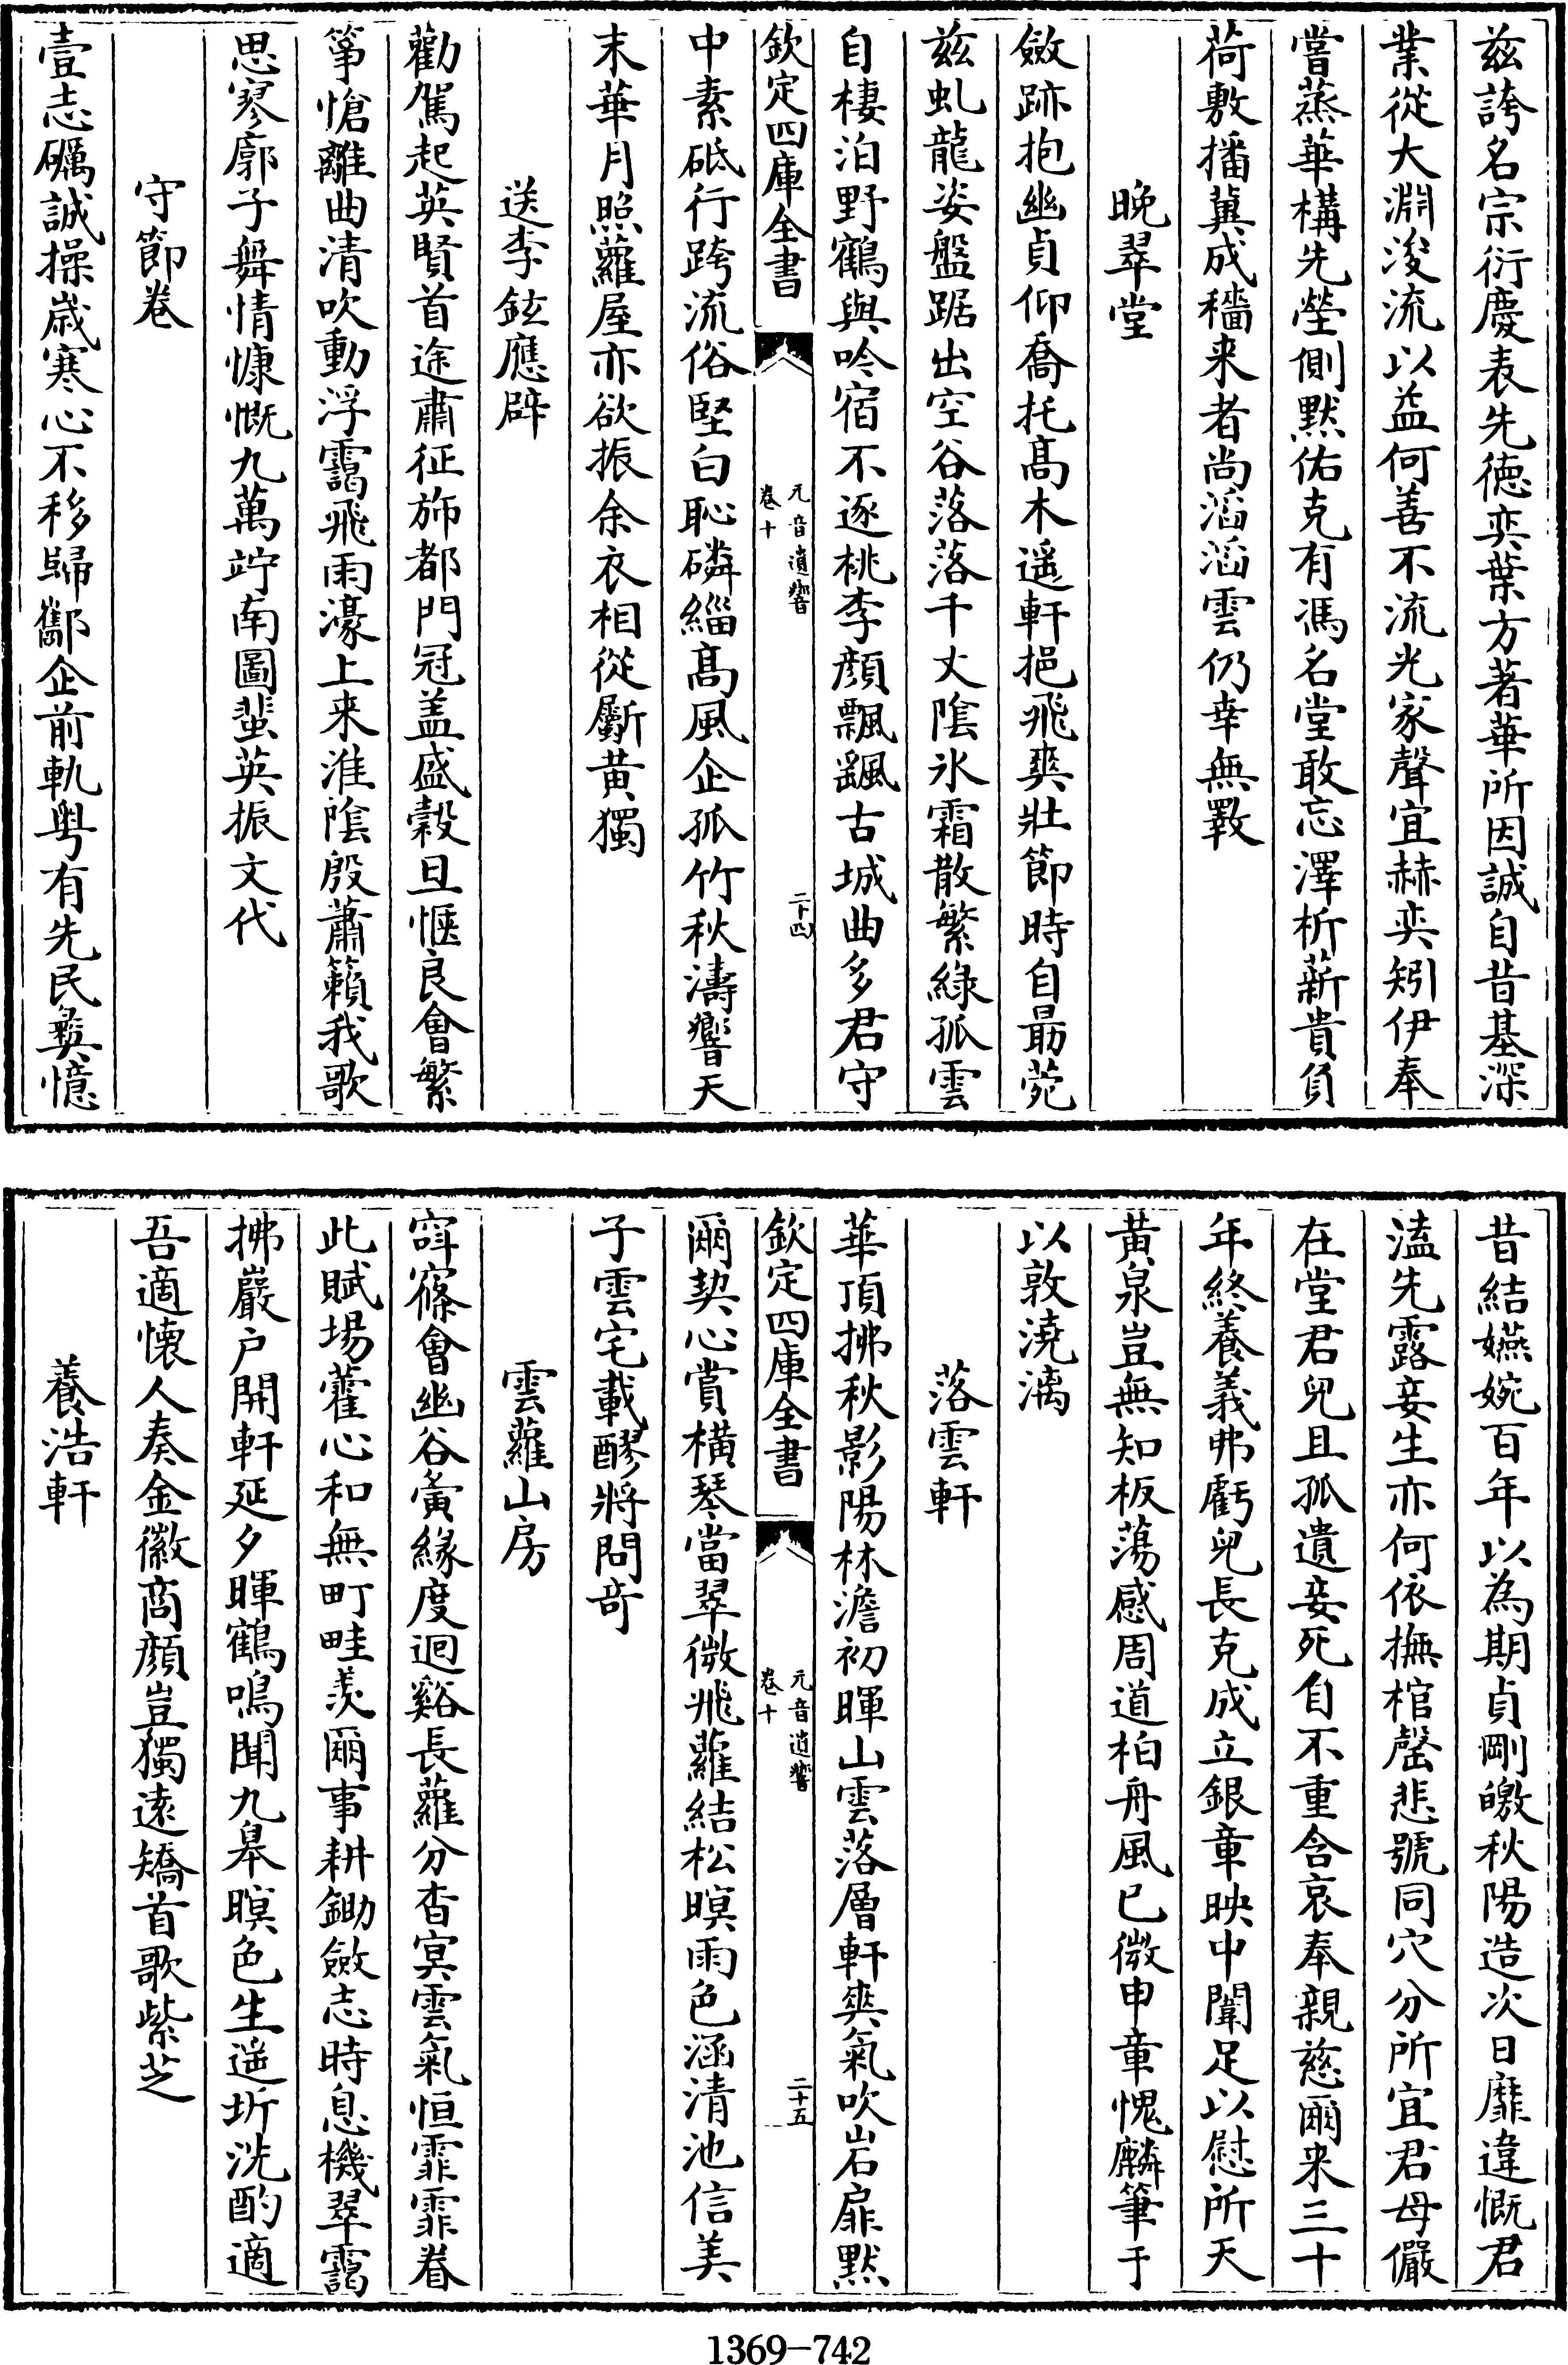 茲誇名宗衍慶表先德奕葉方著華所因誠自昔基深
業從大淵浚流以益何善不流光家聲宜赫奕矧伊奉
嘗蒸華構先塋側默佑克有馮名堂敢忘澤析薪貴負
荷敷播冀成穡来者尚滔滔雲仍幸無斁
晚翠堂
斂跡抱幽貞仰喬托髙木遥軒挹飛爽壯節時自勗菀
茲虬龍姿盤踞出空谷落落千丈陰氷霜散繁綠孤雲
自棲泊野鶴與吟宿不逐桃李顔飄飄古城曲多君守
欽定四庫全書
元音遺響
卷十
二十四
中素砥行跨流俗堅白恥磷緇髙風企孤竹秋濤響天
末華月照蘿屋亦欲振余衣相從斸黄獨
送李鉉應辟
勸駕起英賢首途肅征斾都門冠盖盛榖旦愜良會繁
筝愴離曲清吹動浮靄飛雨濠上来淮陰殷蕭籟我歌
思寥廓子舞情慷慨九萬竚南圖蜚英振文代
守節卷
壹志礪誠操歲寒心不移歸酅企前軌粤有先民彞憶
昔結嬿婉百年以為期貞剛皦秋陽造次日靡違慨君
溘先露妾生亦何依撫棺罄悲號同穴分所宜君母儼
在堂君兒且孤遺妾死自不重含哀奉親慈爾来三十
年終養義弗虧兒長克成立銀章映中闈足以慰所天
黄泉豈無知板蕩感周道柏舟風已微申章愧麟筆于
以敦澆漓
落雲軒
華頂拂秋影陽林澹初暉山雲落層軒爽氣吹岩扉默
欽定四庫全書
元音遺響
卷十
二十五
爾契心賞橫琴當翠微飛蘿結松暝雨色涵清池信美
子雲宅載醪將問奇
雲蘿山房
窲窱會幽谷夤緣度迴谿長蘿分杳冥雲氣恒霏霏眷
此賦場藿心和無町畦羨爾事耕鋤斂志時息機翠靄
拂巖户開軒延夕暉鶴鳴聞九皋暝色生遥圻洗酌適
吾適懷人奏金徽商顔豈獨遠矯首歌紫芝
養浩軒
1369-742